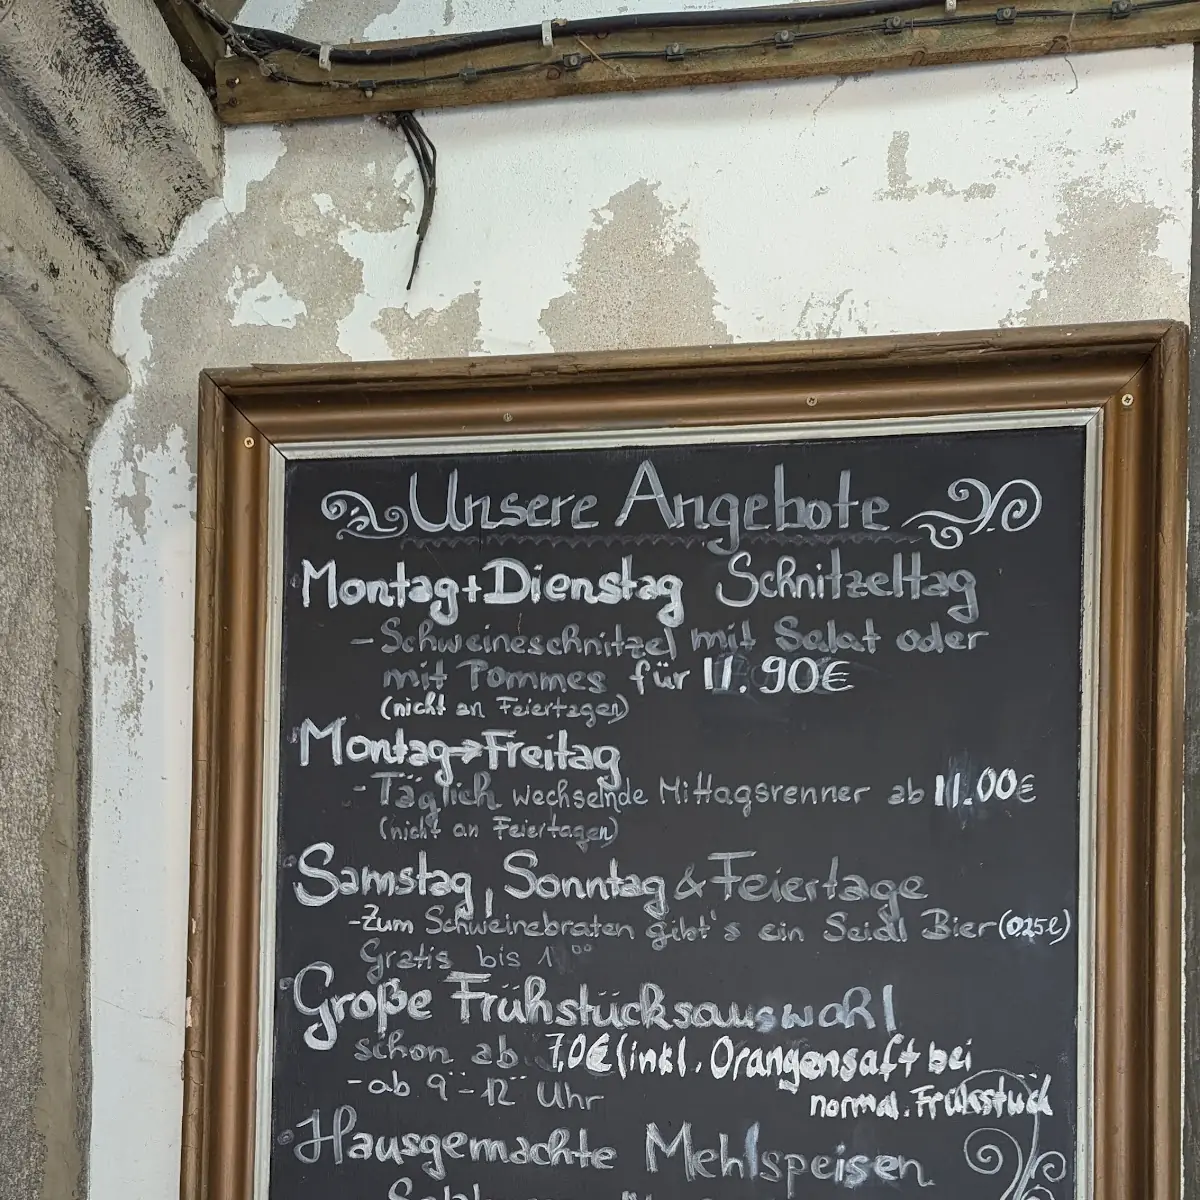 Unsere Angebote
Montag+Dienstag Schnitzeltag
- Schweineschnitzel mit Salat oder
mit Pommes für 11.90€
(nicht an Feiertagen)
Montag→Freitag
- Täglich wechselnde Mittagsrenner ab 11.00€
(nicht an Feiertagen)
Samstag, Sonntag & Feiertage
-Zum Schweinebraten gibt's ein Seidl Bier (0,25l)
Gratis bis
Große Frühstücksauswahl
schon ab 7,0€ (inkl. Orangensaft bei
normal. Frühstück
- ab 9°° - 12°° Uhr
Hausgemachte Mehlspeisen